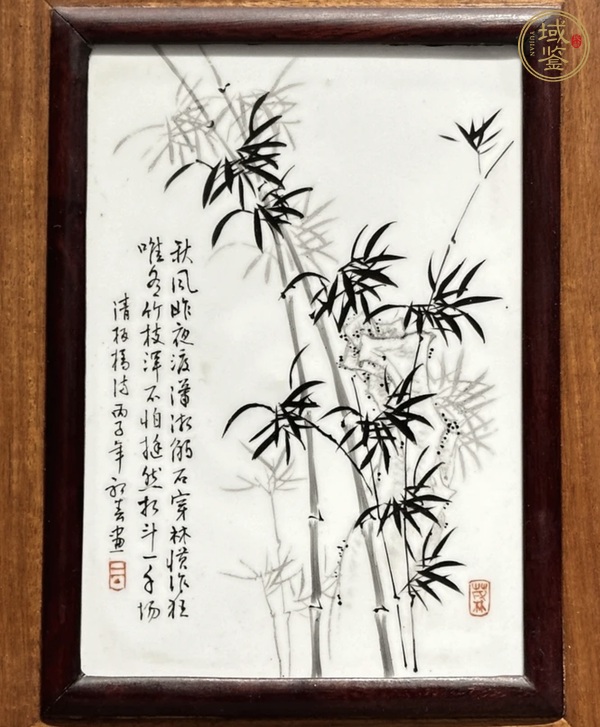 秋风昨夜渡潇湘触石穿林惯作狂
唯有竹枝浑不怕挺然相斗一千场
清板桥诗丙子年初春画
茂林
域鉴
YUJIAN